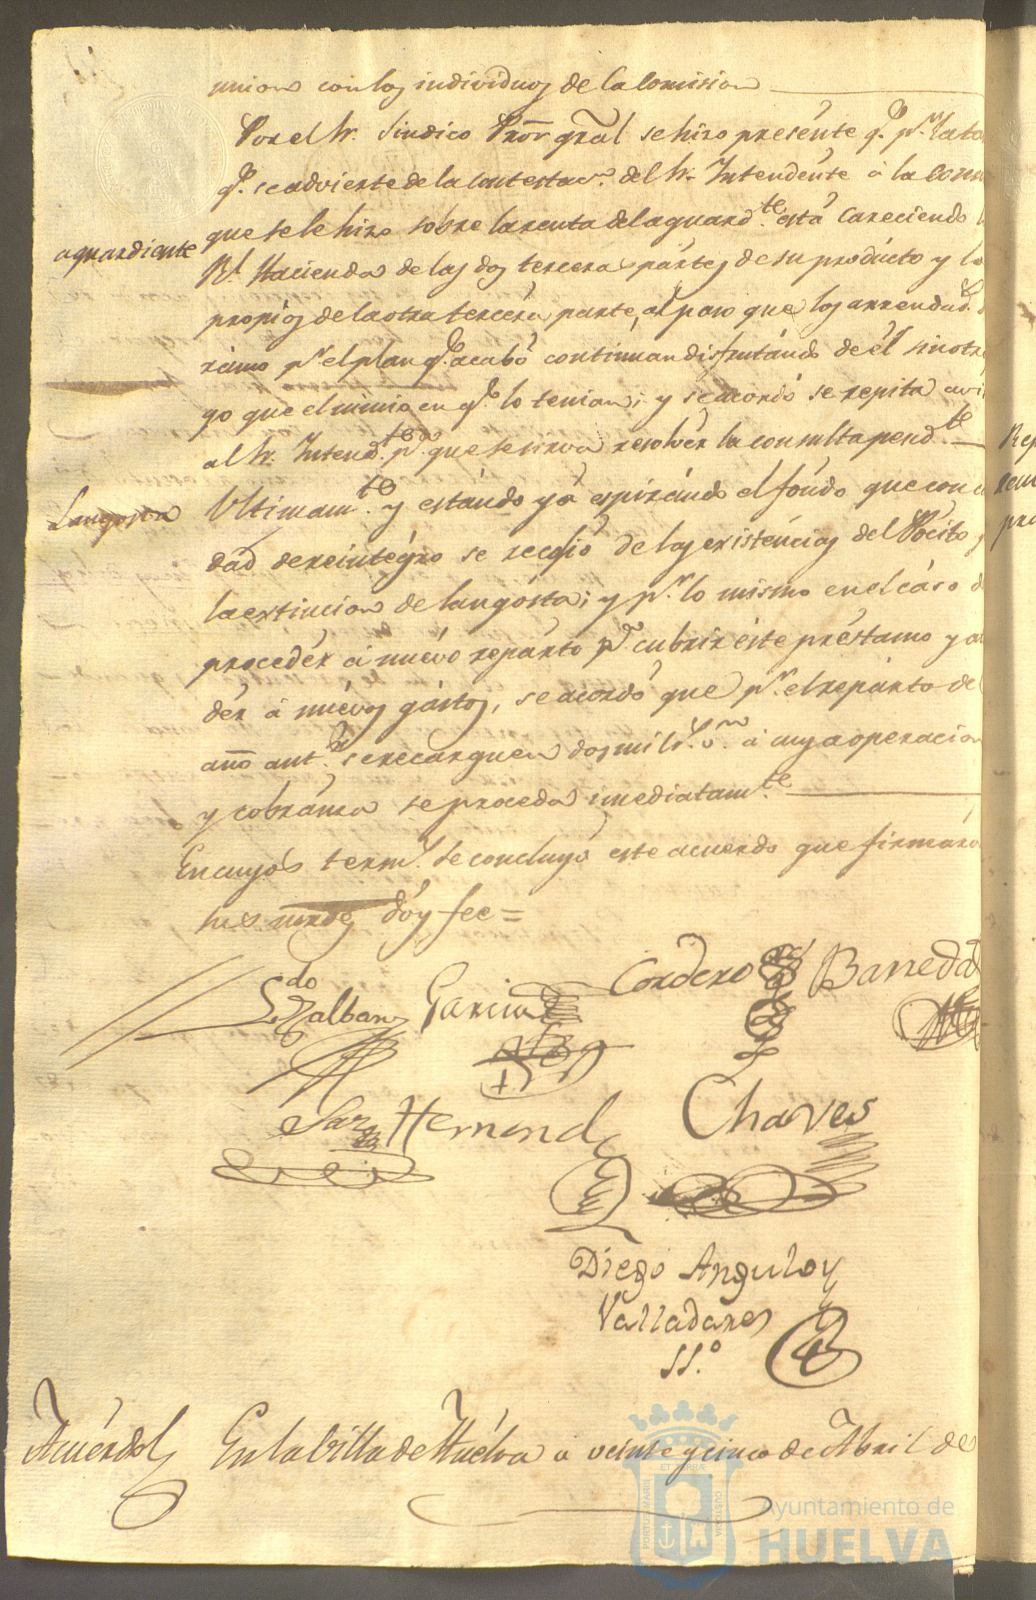 union con los individuos de la Comision
Por el Sr. Sindico Pror gral se hizo presente q.e p.r
q.e se advierte de la contestac.n del Sr. Intendente a la
que se le hizo sobre la renta del aguard.te está careciendo
aguardiente
R.l Hacienda de las dos terceras partes de su producto y lo
propios de la otra tercera parte, al paso que los arrendad.s
ramo p.r el plan q.e acabó continuan disfrutando de él sin otr
go que el mismo en q.e lo tenian; y se acordó se repita
al Sr. Intend.te p.a que se sirva resolver la consulta pend.te
Langosta
Ultimam.te y estando ya espirando el fondo que con
dad de reintegro se recojió de las existencias del Pósito
la extincion de langosta; y p.r lo mismo en el caso d
proceder á nuevo reparto p.a cubrir este préstamo y
der á nuevos gastos, se acordó que p.r el reparto de
año ant.or se recarguen dos mil r.s v.n á cuya operacion
y cobranza se proceda imediatam.te
En cuyos term.s se concluyó este acuerdo que firmaro
sus mrds doy fee =
L.do Zalban
Garcia
Cordero
Barreda
Saz
Hernand
Chaves
Diego Angulo y
Valladares
SS.o
Acuerdo
En la Villa de Huelva a veinte y cinco de Abril de
PORTUS MARIS
ET TERRAE
CUSTODIA
Ayuntamiento de
HUELVA